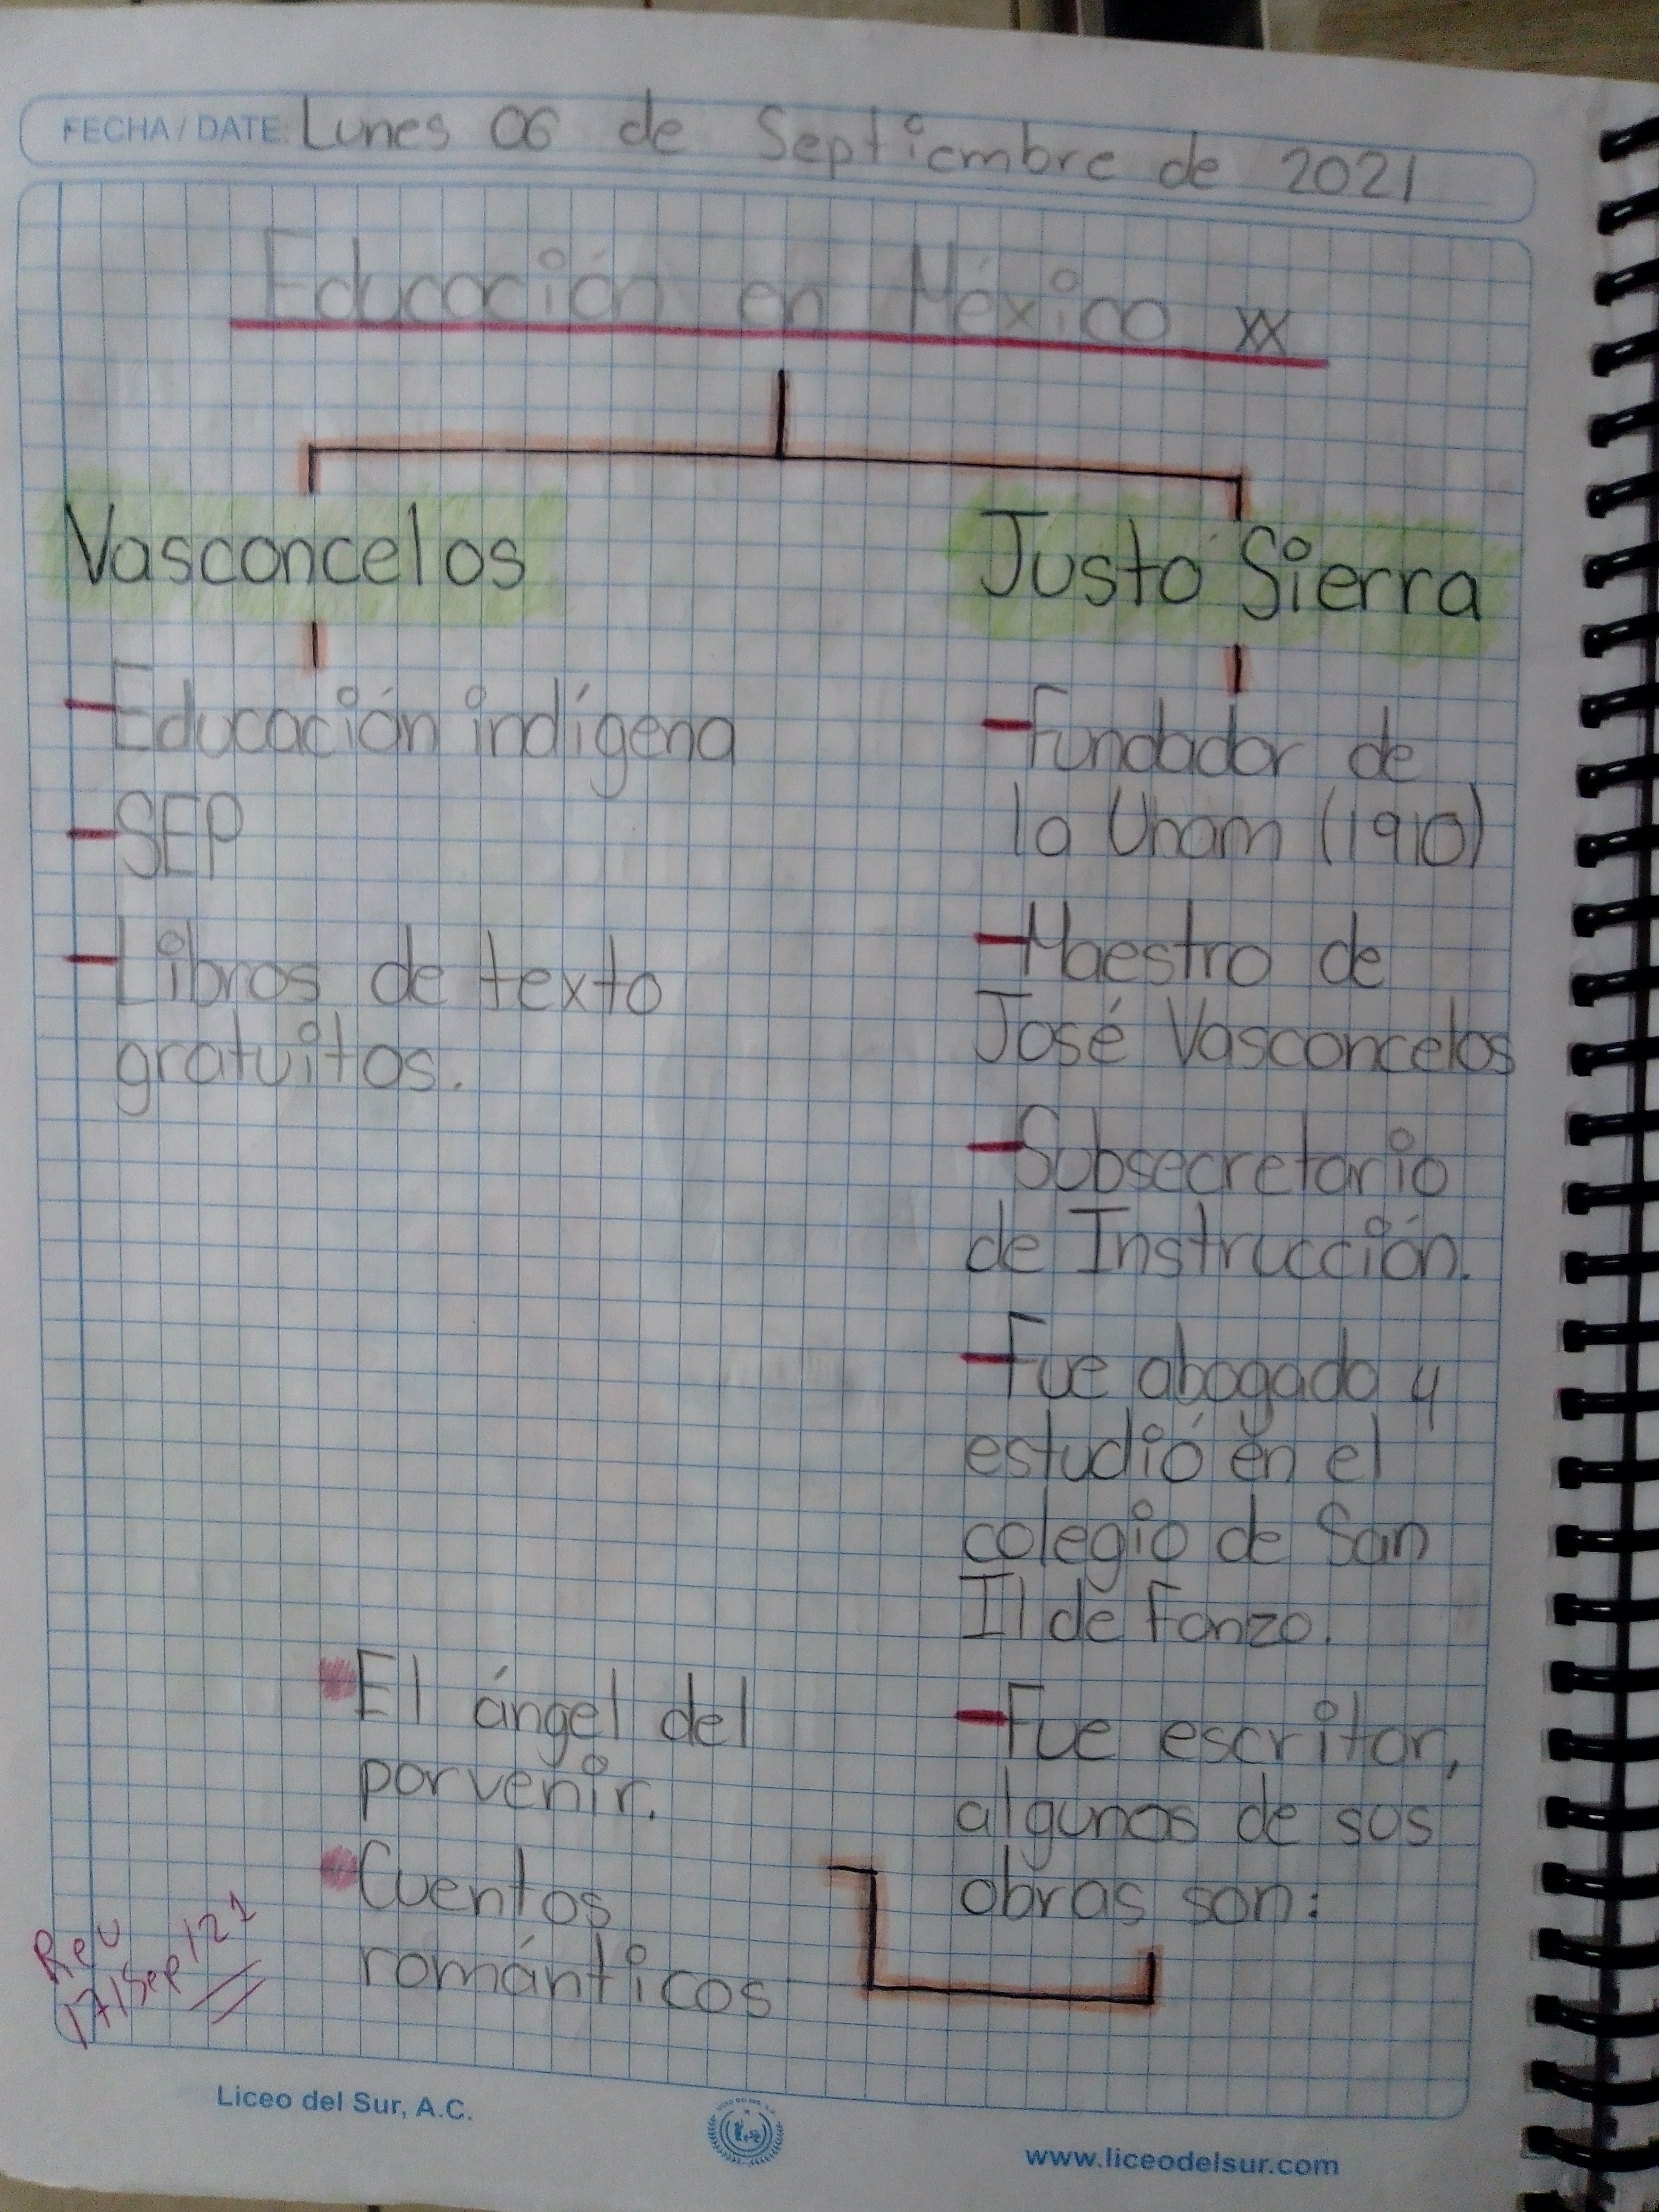 FECHA/DATE: Lunes 06 de Septiembre de 2021
Educación en México XX
Vasconcelos
- Educación indígena
- SEP
- Libros de texto
gratuitos.
Justo Sierra
- Fundador de
la Unam (1910)
- Maestro de
José Vasconcelos
- Subsecretario
de Instrucción.
- Fue abogado y
estudió en el
colegio de San
Il de Fonzo.
- Fue escritor,
algunas de sus
obras son:
El ángel del
porvenir.
Cuentos
románticos
Rev
17/Sep/21
Liceo del Sur, A.C.
www.liceodelsur.com